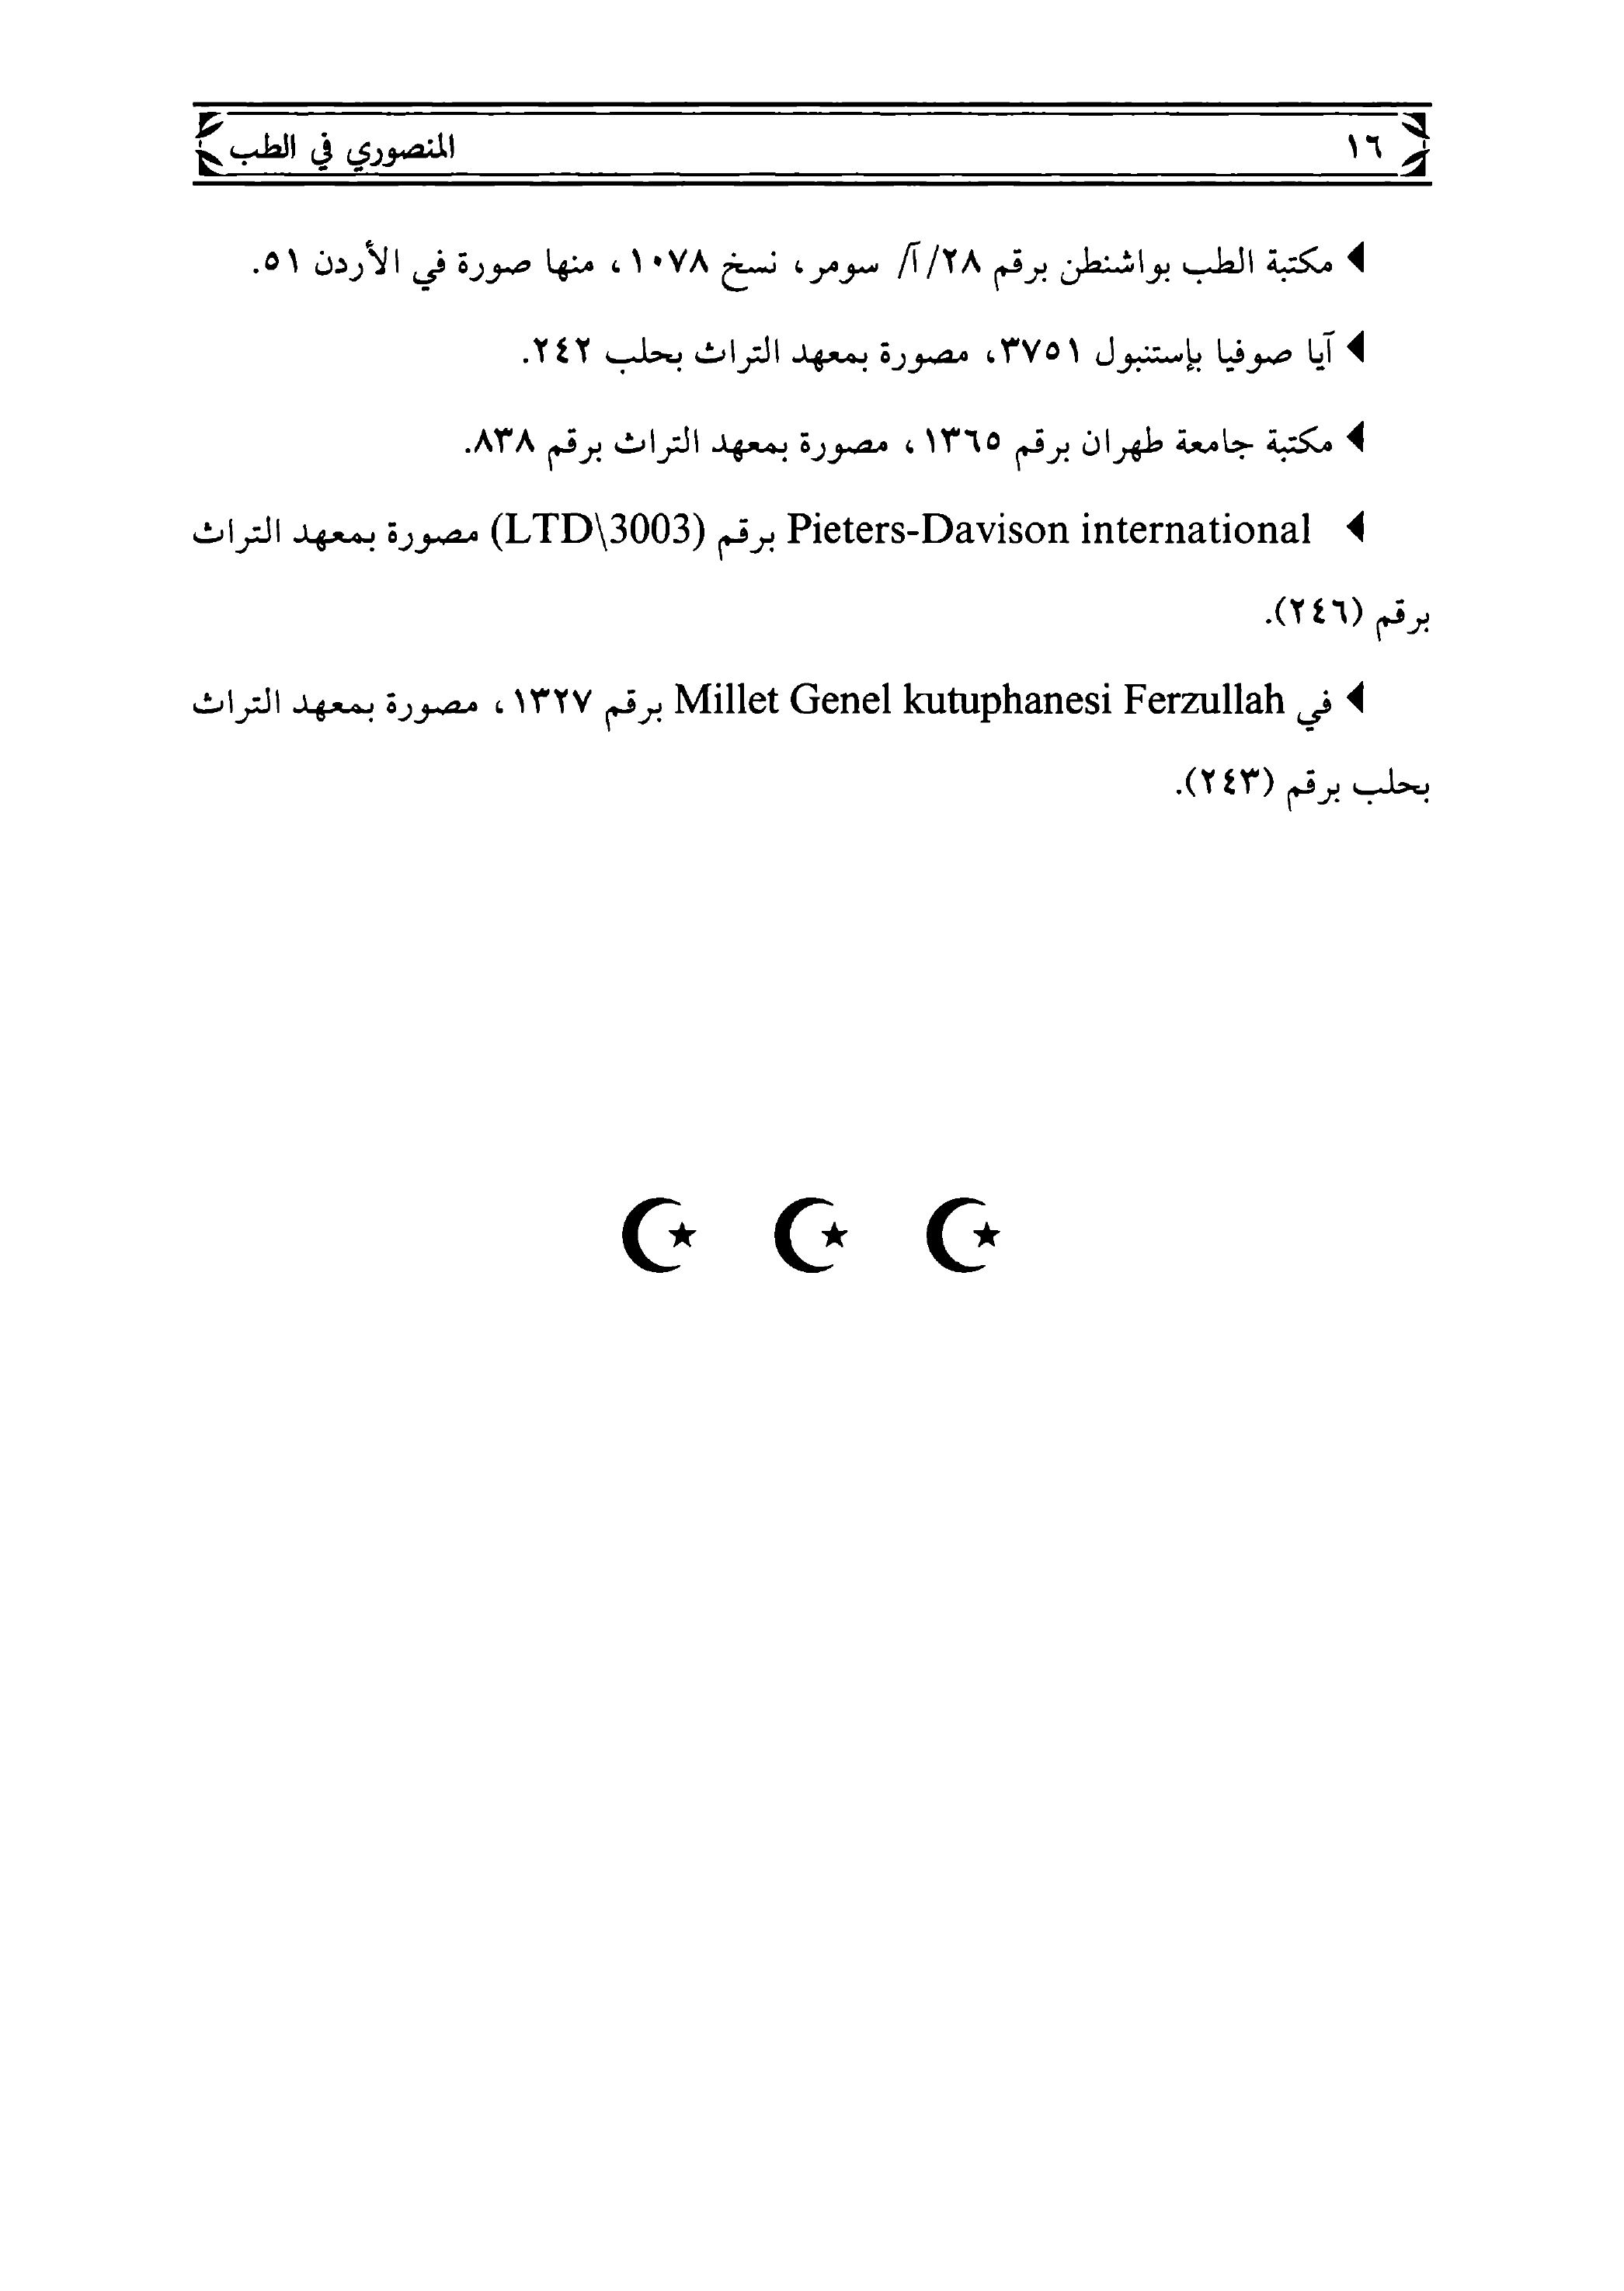 ١٦
المنصوري في الطب
مكتبة الطب بواشنطن برقم ٢٨/آ/ سومر، نسخ ١٠٧٨، منها صورة في الأردن ٥١.
آيا صوفيا بإستنبول ٣٧٥١، مصورة بمعهد التراث بحلب ٢٤٢.
مكتبة جامعة طهران برقم ١٣٦٥، مصورة بمعهد التراث برقم ٨٣٨.
Pieters-Davison international برقم (LTD\3003) مصورة بمعهد التراث
برقم (٢٤٦).
في Millet Genel kutuphanesi Ferzullah برقم ١٣٢٧، مصورة بمعهد التراث
بحلب برقم (٢٤٣).